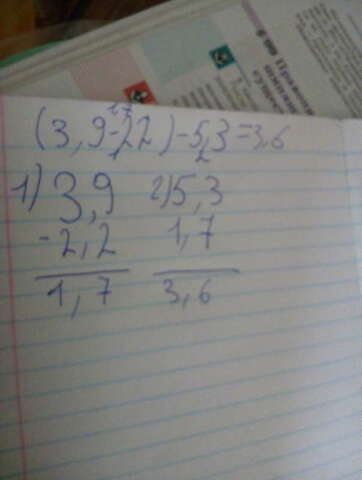 1,7
(3,9-2,2)-5,3=3,6
1 2
1) 3,9 2) 5,3
-2,2 1,7
1,7 3,6